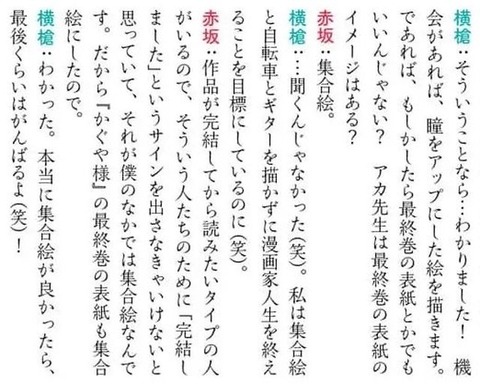 横槍：そういうことなら…わかりました！　機
会があれば、瞳をアップにした絵を描きます。
であれば、もしかしたら最終巻の表紙とかでも
いいんじゃない？　アカ先生は最終巻の表紙の
イメージはある？
赤坂：集合絵。
横槍：…聞くんじゃなかった（笑）。私は集合絵
と自転車とギターを描かずに漫画家人生を終え
ることを目標にしているのに（笑）。
赤坂：作品が完結してから読みたいタイプの人
がいるので、そういう人たちのために「完結し
ました」というサインを出さなきゃいけないと
思っていて、それが僕のなかでは集合絵なんで
す。だから『かぐや様』の最終巻の表紙も集合
絵にしたので。
横槍：わかった。本当に集合絵が良かったら、
最後くらいはがんばるよ（笑）！